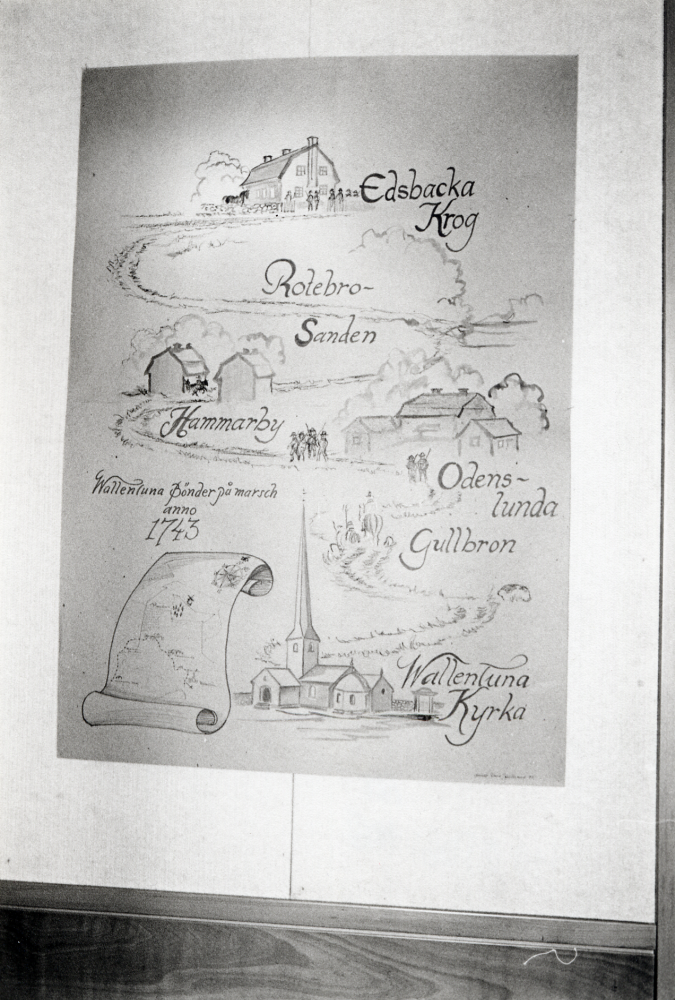 Edsbacka
Krog
Rotebro-
Sanden
Hammarby
Odens-
lunda
Gullbron
Wallentuna Bönder på marsch
anno
1743
Wallentuna
Kyrka